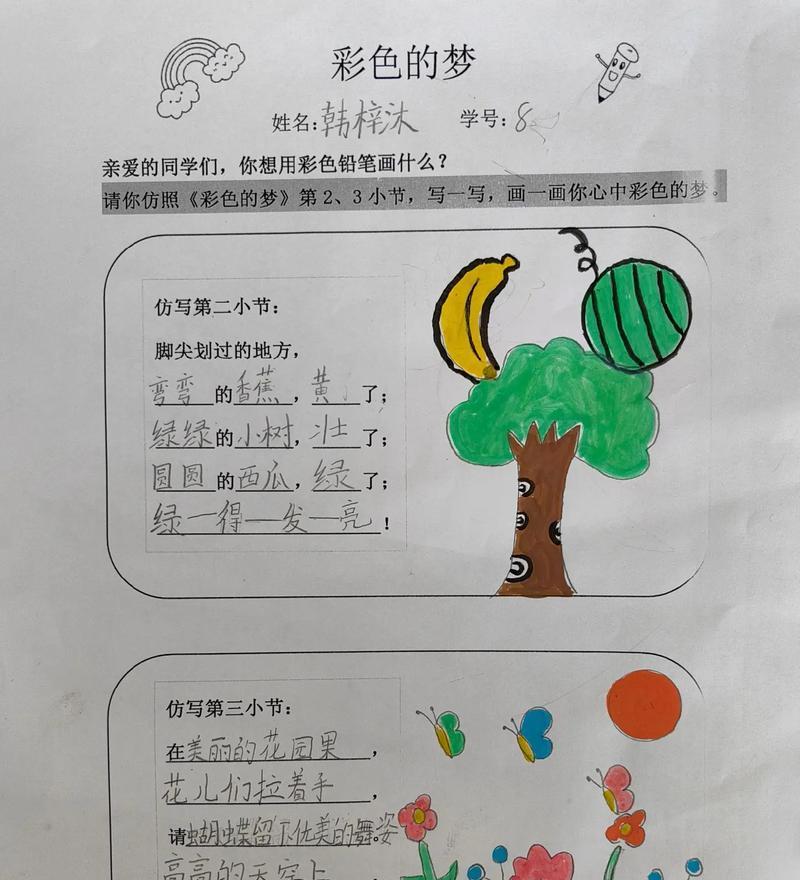 彩色的梦
姓名:韩梓沐 学号:8
亲爱的同学们，你想用彩色铅笔画什么？
请你仿照《彩色的梦》第2、3小节，写一写，画一画你心中彩色的梦。
仿写第二小节：
脚尖划过的地方，
弯弯的香蕉，黄了；
绿绿的小树，壮了；
圆圆的西瓜，绿了；
绿—得—发—亮！
仿写第三小节：
在美丽的花园果，
花儿们拉着手，
请蝴蝶留下优美的舞姿。
高高的天空上，